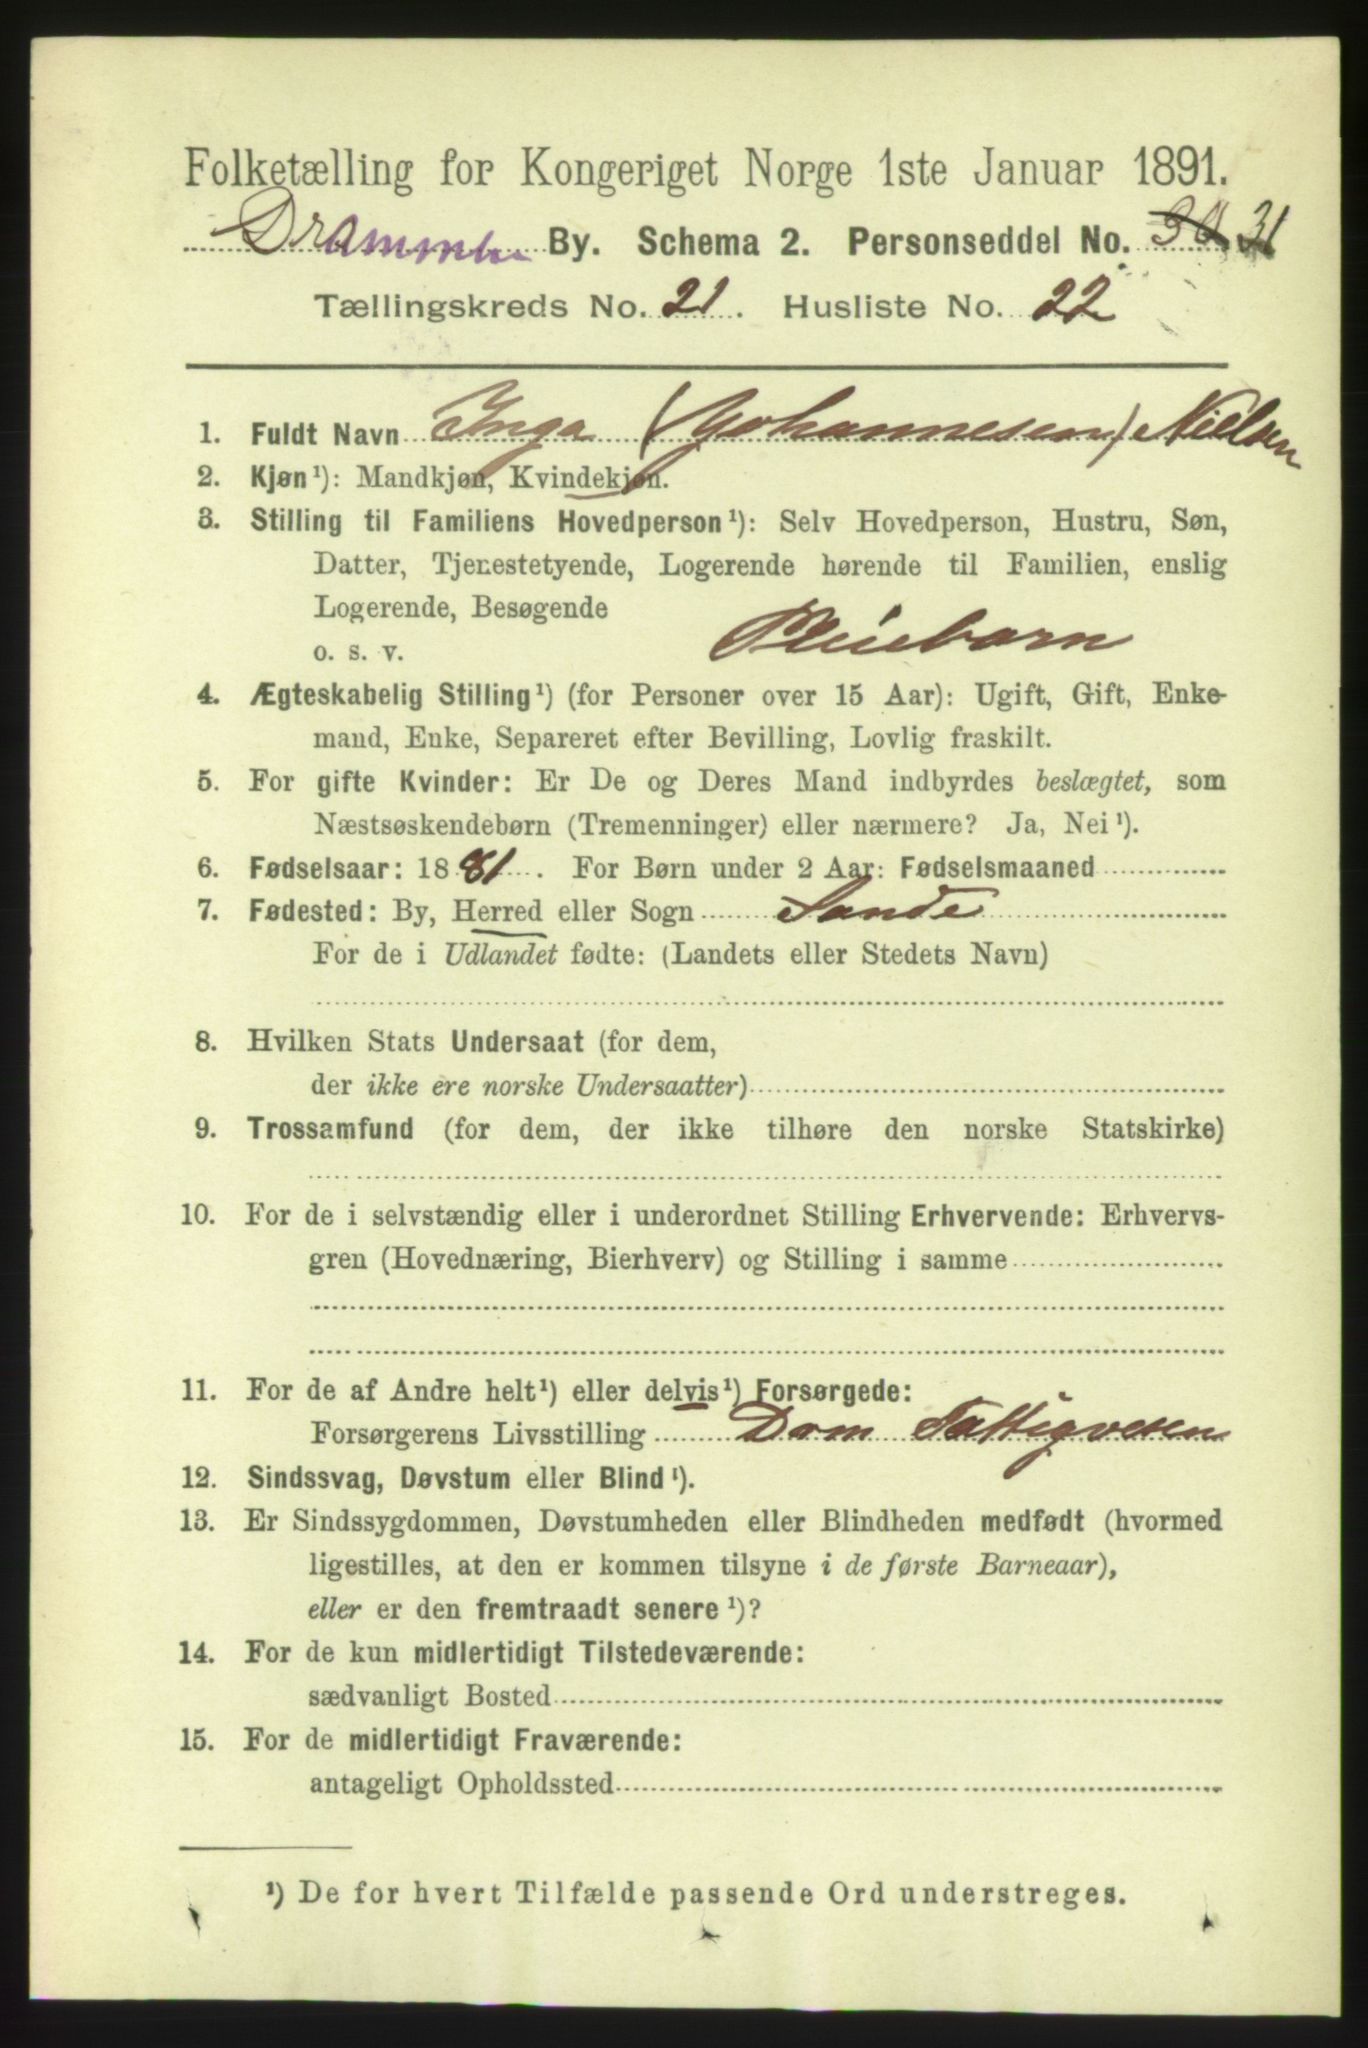 Folketælling for Kongeriget Norge 1ste Januar 1891.
Drammen By. Schema 2. Personseddel No. 30 31
Tællingskreds No. 21. Husliste No. 22
1. Fuldt Navn Inga (Johannesen) Nielsen
2. Kjøn¹): Mandkjøn, Kvindekjøn.
3. Stilling til Familiens Hovedperson¹): Selv Hovedperson, Hustru, Søn,
Datter, Tjenestetyende, Logerende hørende til Familien, enslig
Logerende, Besøgende
o. s. v. Pleiebarn
4. Ægteskabelig Stilling¹) (for Personer over 15 Aar): Ugift, Gift, Enke-
mand, Enke, Separeret efter Bevilling, Lovlig fraskilt.
5. For gifte Kvinder: Er De og Deres Mand indbyrdes beslægtet, som
Næstsøskendebørn (Tremenninger) eller nærmere? Ja, Nei¹).
6. Fødselsaar: 1881. For Børn under 2 Aar: Fødselsmaaned
7. Fødested: By, Herred eller Sogn Sande
For de i Udlandet fødte: (Landets eller Stedets Navn)
8. Hvilken Stats Undersaat (for dem,
der ikke ere norske Undersaatter)
9. Trossamfund (for dem, der ikke tilhøre den norske Statskirke)
10. For de i selvstændig eller i underordnet Stilling Erhvervende: Erhvervs-
gren (Hovednæring, Bierhverv) og Stilling i samme
11. For de af Andre helt¹) eller delvis¹) Forsørgede:
Forsørgerens Livsstilling Dram Fattigvesen
12. Sindssvag, Døvstum eller Blind¹).
13. Er Sindssygdommen, Døvstumheden eller Blindheden medfødt (hvormed
ligestilles, at den er kommen tilsyne i de første Barneaar),
eller er den fremtraadt senere¹)?
14. For de kun midlertidigt Tilstedeværende:
sædvanligt Bosted
15. For de midlertidigt Fraværende:
antageligt Opholdssted
¹) De for hvert Tilfælde passende Ord understreges.